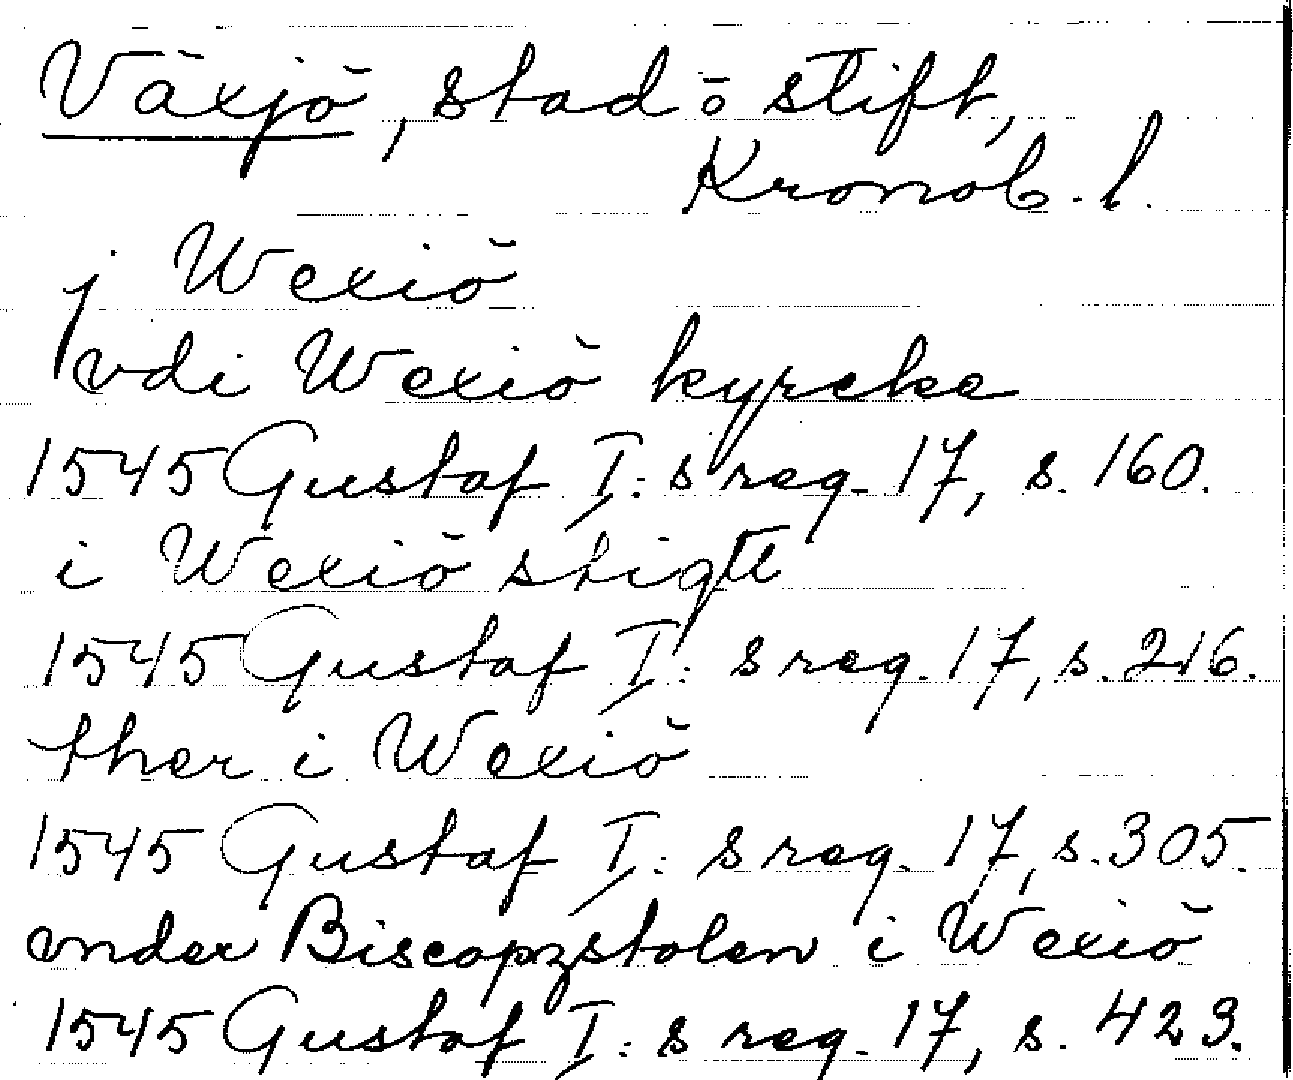 Växjö, stad o stift,
Kronob. l.
j Wexiö
vdi Wexiö kyrcke
1545 Gustaf I:s reg. 17, s. 160.
i Wexiö stigtt
1545 Gustaf I:s reg. 17, s. 216.
ther i Wexiö
1545 Gustaf I:s reg. 17, s. 305.
vnder Biscopzstolen i Wexiö
1545 Gustaf I:s reg. 17, s. 423.